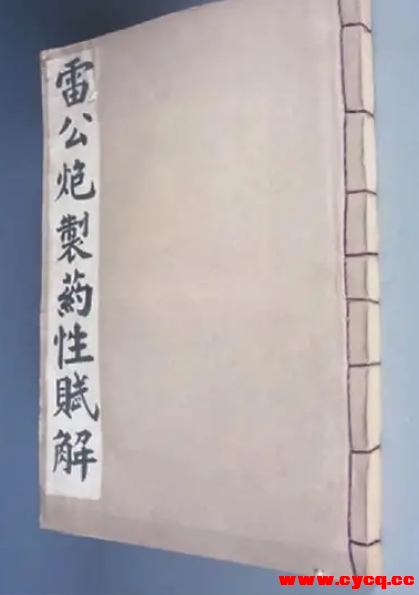 雷公炮製葯性賦解
www.cycq.cc